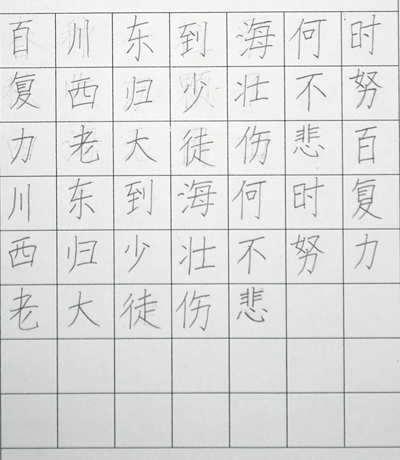 百川东到海何时
复西归少壮不努
力老大徒伤悲百
川东到海何时复
西归少壮不努力
老大徒伤悲